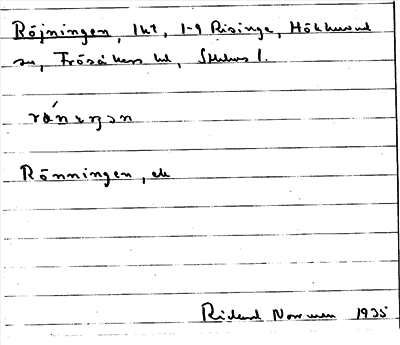 Röjningen, 1 ht, 1-9 Risinge, Hökhuvud
sn, Frösåkers hd, Sthlms l.
rǿnıŋən
Rönningen, ek
Rickard Norrman 1935